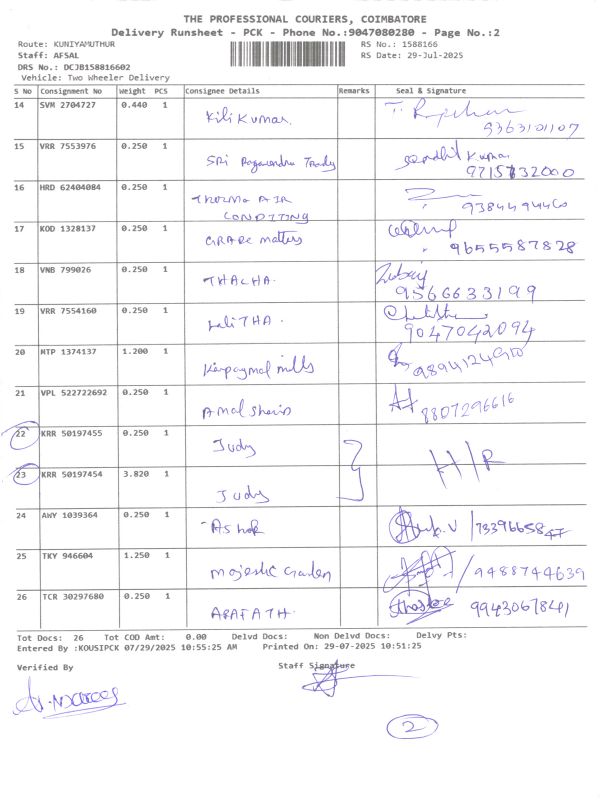 THE PROFESSIONAL COURIERS, COIMBATORE
Delivery Runsheet - PCK - Phone No.:9047080280 - Page No.:2
Route: KUNIYAMUTHUR RS No.: 1588166
Staff: AFSAL RS Date: 29-Jul-2025
DRS No.: DCJB158816602
Vehicle: Two Wheeler Delivery
S No Consignment No Weight PCS Consignee Details Remarks Seal & Signature
14 SVM 2704727 0.440 1 Kili Kumar.
9363101107
15 VRR 7553976 0.250 1 SRi Ragavendra senthil kumar
9715732000
16 HRD 62404084 0.250 1 Thermo AIR
CONDITING
17 KOD 1328137 0.250 1 GRADE matters
9655587828
18 VNB 799026 0.250 1 THALHA.
9566633199
19 VRR 7554160 0.250 1 LaliTHA.
9047042094
20 MTP 1374137 1.200 1 Karpagmal mills
21 VPL 522722692 0.250 1 Amal
8807296616
22 KRR 50197455 0.250 1 Judy
H/R
23 KRR 50197454 3.820 1 Judy
24 AWY 1039364 0.250 1 Ashok 7339665847
25 TKY 946604 1.250 1 Majestic Garden 9488744639
26 TCR 30297680 0.250 1 ARAFATH. 9943067841
Tot Docs: 26 Tot COD Amt: 0.00 Delvd Docs: Non Delvd Docs: Delvy Pts:
Entered By :KOUSIPCK 07/29/2025 10:55:25 AM Printed On: 29-07-2025 10:51:25
Verified By Staff Signature
2